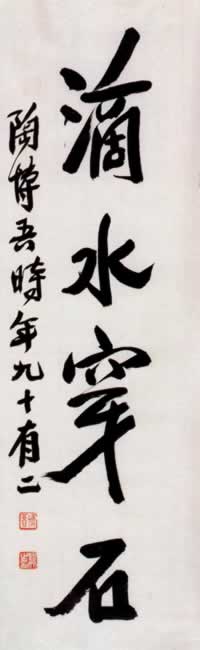 滴水穿石
陶博吾時年九十有二